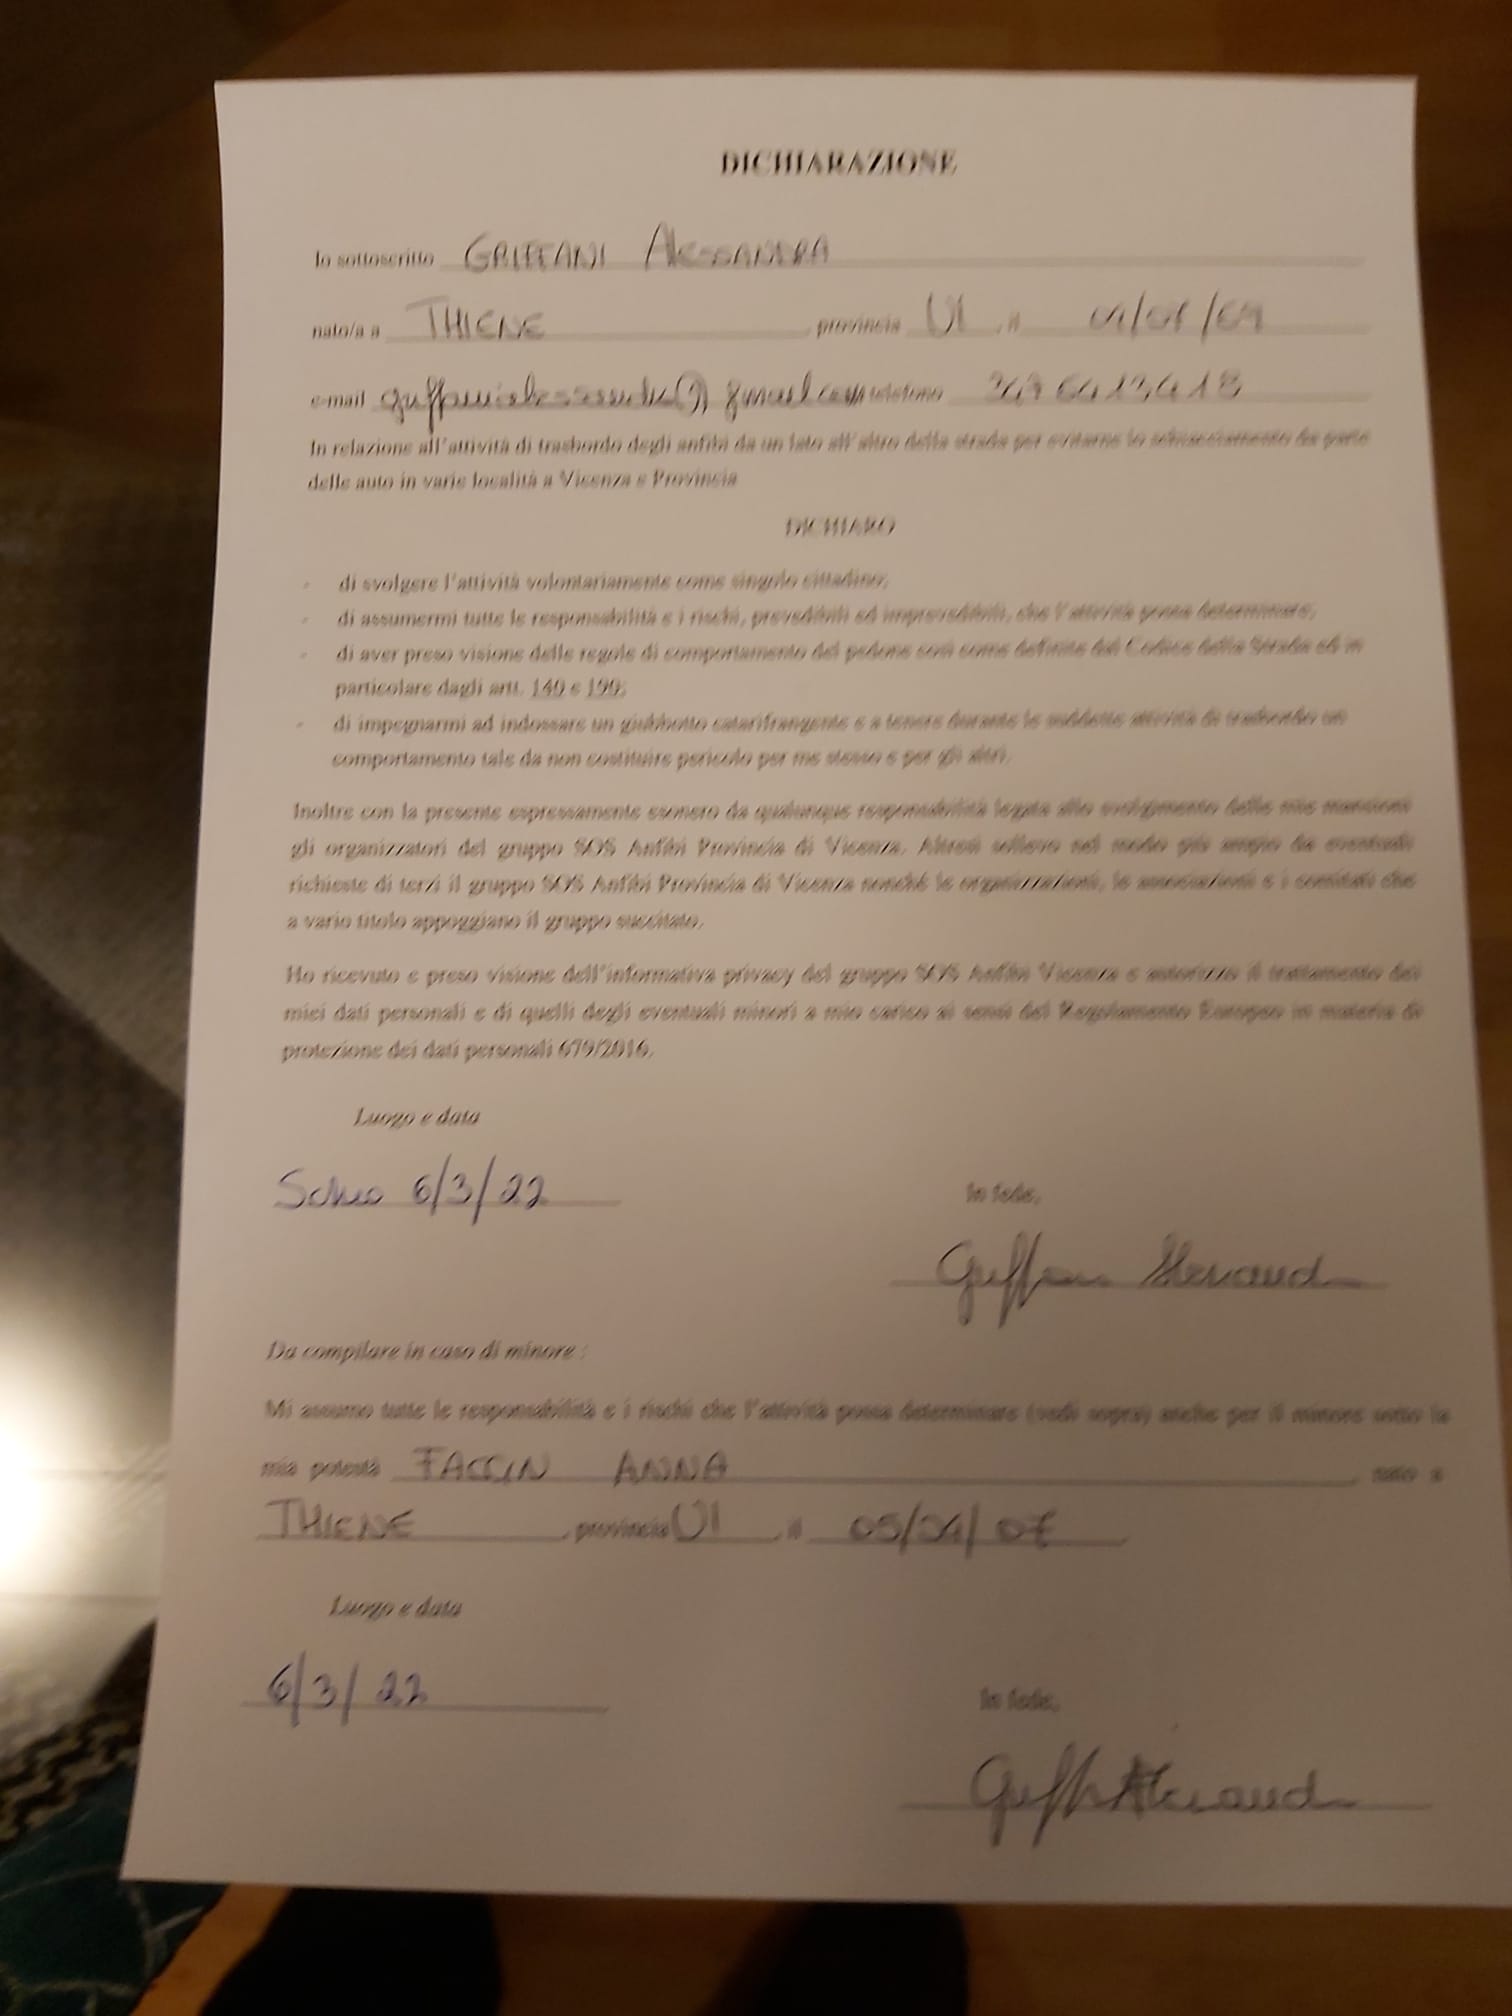 DICHIARAZIONE
Io sottoscritto GRIFFANI ALESSANDRA
nato/a a THIENE provincia VI , il
e-mail telefono
In relazione all'attività di trasbordo degli anfibi da un lato all'altro della strada per evitarne lo schiacciamento da parte
delle auto in varie località a Vicenza e Provincia
DICHIARO
- di svolgere l'attività volontariamente come singolo cittadino;
- di assumermi tutte le responsabilità e i rischi, prevedibili ed imprevedibili, che l'attività possa determinare;
- di aver preso visione delle regole di comportamento del pedone così come definite dal Codice della Strada ed in
particolare dagli artt. 140 e 190;
- di impegnarmi ad indossare un giubbotto catarifrangente e a tenere durante le suddette attività di trasbordo un
comportamento tale da non costituire pericolo per me stesso e per gli altri.
Inoltre con la presente espressamente esonero da qualunque responsabilità legata allo svolgimento delle mie mansioni
gli organizzatori del gruppo SOS Anfibi Provincia di Vicenza. Altresì sollevo nel modo più ampio da eventuali
richieste di terzi il gruppo SOS Anfibi Provincia di Vicenza nonché le organizzazioni, le associazioni e i comitati che
a vario titolo appoggiano il gruppo succitato.
Ho ricevuto e preso visione dell'informativa privacy del gruppo SOS Anfibi Vicenza e autorizzo il trattamento dei
miei dati personali e di quelli degli eventuali minori a mio carico ai sensi del Regolamento Europeo in materia di
protezione dei dati personali 679/2016.
Luogo e data
Schio 6/3/22
In fede,
Da compilare in caso di minore :
Mi assumo tutte le responsabilità e i rischi che l'attività possa determinare (vedi sopra) anche per il minore sotto la
mia potestà FACCIN ANNA , nato a
THIENE , provincia VI , il 05/04/07
Luogo e data
6/3/22
In fede,